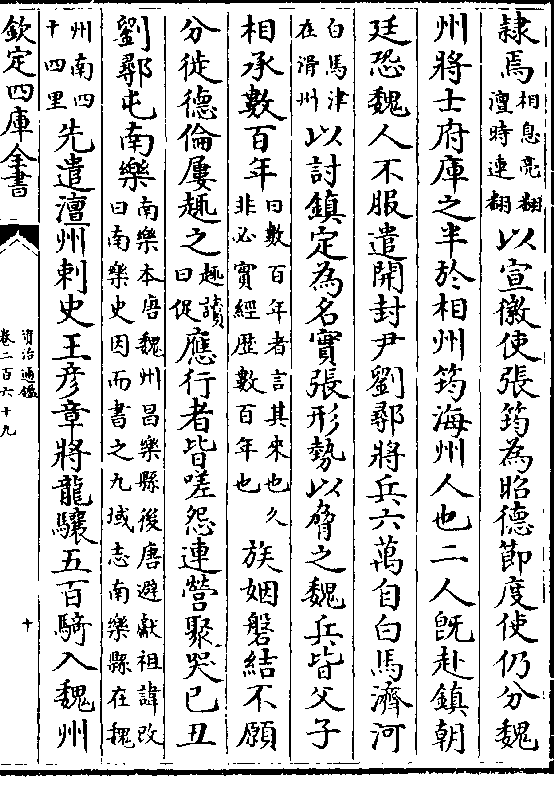 隷焉相息亮翻
澶時連翻以宣徽使張筠為昭德節度使仍分魏
州將士府庫之半於相州筠海州人也二人旣赴鎮朝
廷恐魏人不服遣開封尹劉鄩將兵六萬自白馬濟河
白馬津
在滑州以討鎮定為名實張形勢以脅之魏兵皆父子
相承數百年曰數百年者言其來也久
非必實經歴數百年也族姻磐結不願
分徙德倫屢趣之趣讀
曰促應行者皆嗟怨連營聚哭已丑
劉鄩屯南樂南樂本唐魏州昌樂縣後唐避獻祖諱改
曰南樂史因而書之九域志南樂縣在魏
州南四
十四里先遣澶州刺史王彦章將龍驤五百騎入魏州
欽定四庫全書
資治通鑑
卷二百六十九
十